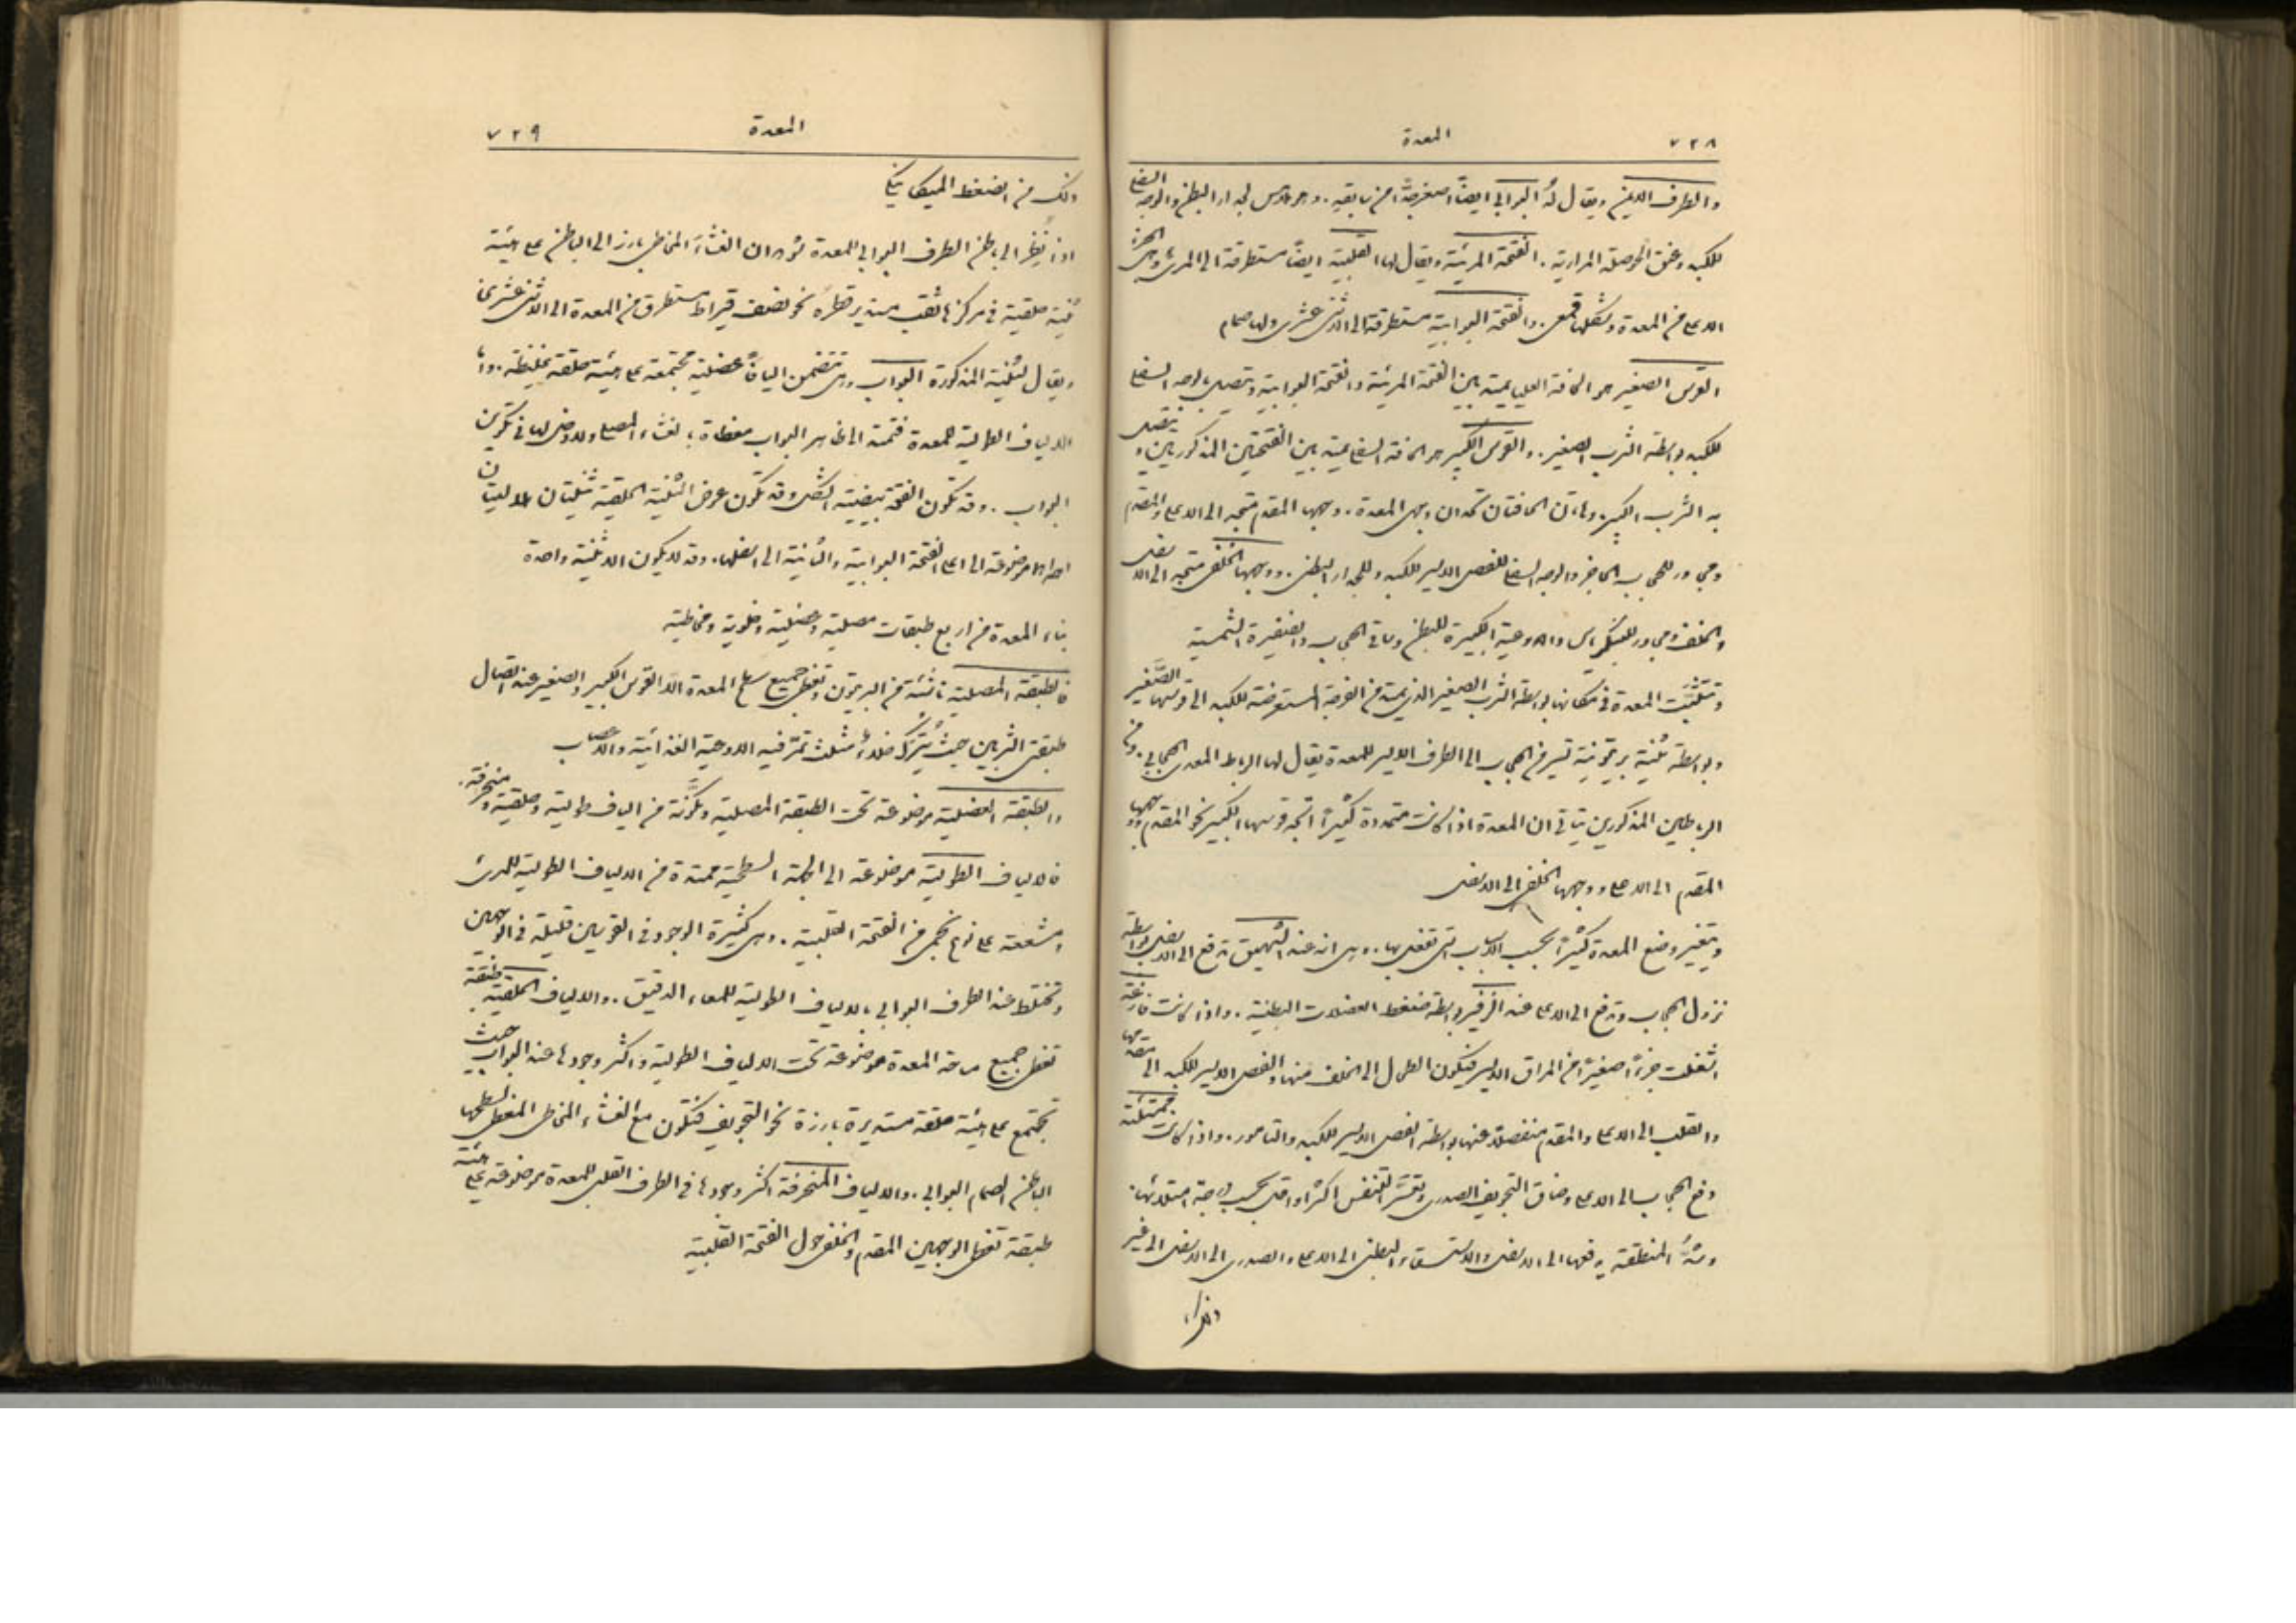 ٧٢٨ المعدة
والطرف الايمن ويقال لهُ البوابي ايضًا اصغر حجمًا من سابقيه. وهو ملامس لجدار البطن والوجه السفلي
للكبد وعنق الحوصلة المرارية. الفتحة المريئية ويقال لها القلبية ايضًا مستطرقة الى المريء وهي الجزء
الاعلى من المعدة وشكلها قمعي. والفتحة البوابية مستطرقة الى الاثني عشري ولها صمام
القوس الصغير هو الحافة العليا يمتد بين الفتحة المريئية والفتحة البوابية ويتصل بالوجه السفلي
للكبد بواسطة الثرب الصغير. والقوس الكبير هو الحافة السفلى يمتد بين الفتحتين المذكورتين ويتصل
به الثرب الكبير. وهاتان الحافتان تحدان وجهي المعدة. وجهها المقدم متجه الى الاعلى والمقدم
ومجاور للحجاب الحاجز والوجه السفلي للفص الايسر للكبد وللجدار البطني. ووجهها الخلفي متجه الى الاسفل
والخلف ومجاور للبنكرياس والاوعية الكبيرة للبطن وساقي الحجاب والضفيرة الشمسية
وتتثبَّت المعدة في مكانها بواسطة الثرب الصغير الذي يمتد من الفرجة المستعرضة للكبد الى قوسها الصغير
وبواسطة ثنية بريتونية تسير من الحجاب الى الطرف الايسر للمعدة يقال لها الرباط المعدي الحجابي. ومن
الرباطين المذكورين يتاتى ان المعدة اذا كانت متمددة كثيرًا اتجه قوسها الكبير نحو المقدم ووجهها
المقدم الى الاعلى ووجهها الخلفي الى الاسفل
ويتغير وضع المعدة كثيرًا بحسب الاسباب التي تفعل بها. وهي انه عند الشهيق تدفع الى الاسفل بواسطة
نزول الحجاب وترفع الى الاعلى عند الزفير بواسطة ضغط العضلات البطنية. واذا كانت فارغة
اشغلت جزءًا صغيرًا من المراق الايسر فيكون الطحال الى الخلف منها والفص الايسر للكبد الى مقدمها
والقلب الى الاعلى والمقدم منفصلًا عنها بواسطة الفص الايسر للكبد والتامور. واذا كانت ممتلئة
دفع الحجاب الى الاعلى وضاق التجويف الصدري وتعسَّر التنفس اكثر او اقل بحسب درجة امتلائها.
وشدُّ المنطقة يدفعها الى الاسفل والاستسقاء البطني الى الاعلى والصدري الى الاسفل الى غير
ذلك
المعدة ٧٢٩
ذلك من الضغط الميكانيكي
اذا نُظِر الى باطن الطرف البوابي للمعدة شوهد ان الغشاءَ المخاطي بارز الى الباطن على هيئة
ثنية حلقية في مركزها ثقب مستدير قطرهُ نحو نصف قيراط مستطرق من المعدة الى الاثني عشري
ويقال للثنية المذكورة البواب وهي تتضمن اليافًا عضلية مجتمعة على هيئة حلقة غليظة. واما
الالياف الطولية للمعدة فتمتد الى ظاهر البواب مغطاة بالغشاء المصلي ولا دخل لها في تكوين
البواب. وقد تكون الفتحة بيضية الشكل وقد تكون عوض الثنية الحلقية ثنيتان هلاليتان
احداهما موضوعة الى اعلى الفتحة البوابية والثانية الى اسفلها. وقد لا يكون الا ثنية واحدة
بناء المعدة من اربع طبقات مصلية وعضلية وخلوية ومخاطية
فالطبقة المصلية ناشئة من البريتون وتغطي جميع سطح المعدة الا القوس الكبير والصغير عند اتصال
طبقتي الثربين حيث يُترَك خلاءٌ مثلث تمرّ فيه الاوعية الغذائية والاعصاب
والطبقة العضلية موضوعة تحت الطبقة المصلية ومكوَّنة من الياف طولية وحلقية ومنحرفة.
فالالياف الطولية موضوعة الى الجهة السطحية ممتدة من الالياف الطولية للمريء
ومشععة على نوع نجمي من الفتحة القلبية. وهي كثيرة الوجود في القوسين قليلة في الوجهين
وتختلط عند الطرف البوابي بالالياف الطولية للمعاء الدقيق. والالياف الحلقية طبقة
تغطي جميع ساحة المعدة موضوعة تحت الالياف الطولية واكثر وجودها عند البواب حيث
تجتمع على هيئة حلقة مستديرة بارزة نحو التجويف فتكوّن مع الغشاء المخاطي المغطي لسطحها
الباطن الصمام البوابي. والالياف المنحرفة اكثر وجودها في الطرف القلبي للمعدة موضوعة على هيئة
طبقة تغطي الوجهين المقدم والخلفي حول الفتحة القلبية